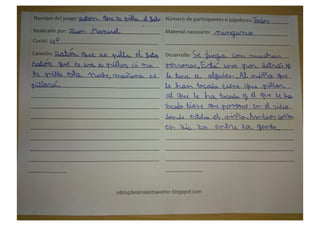 Nombre del juego: ratón que se pilla el gato
Número de participantes o jugadores: Todos
Realizado por: Juan Manuel
Material necesario: ninguno
Curso: 4º
Canción: Ratón que se pilla el gato
ratón que se va a pillar si no
te pilla esta noche, mañana se
pillará.
Desarrollo: Se juega con muchas
personas. Está uno por detrás y
le toca a alguien. Al niño que
le han tocado tiene que pillar
al que le ha tocado y el que le ha
tocado tiene que ponerse en el sitio
donde estaba el niño,
en zic zac entre la gente.
elblogdelamaestraesther.blogspot.com